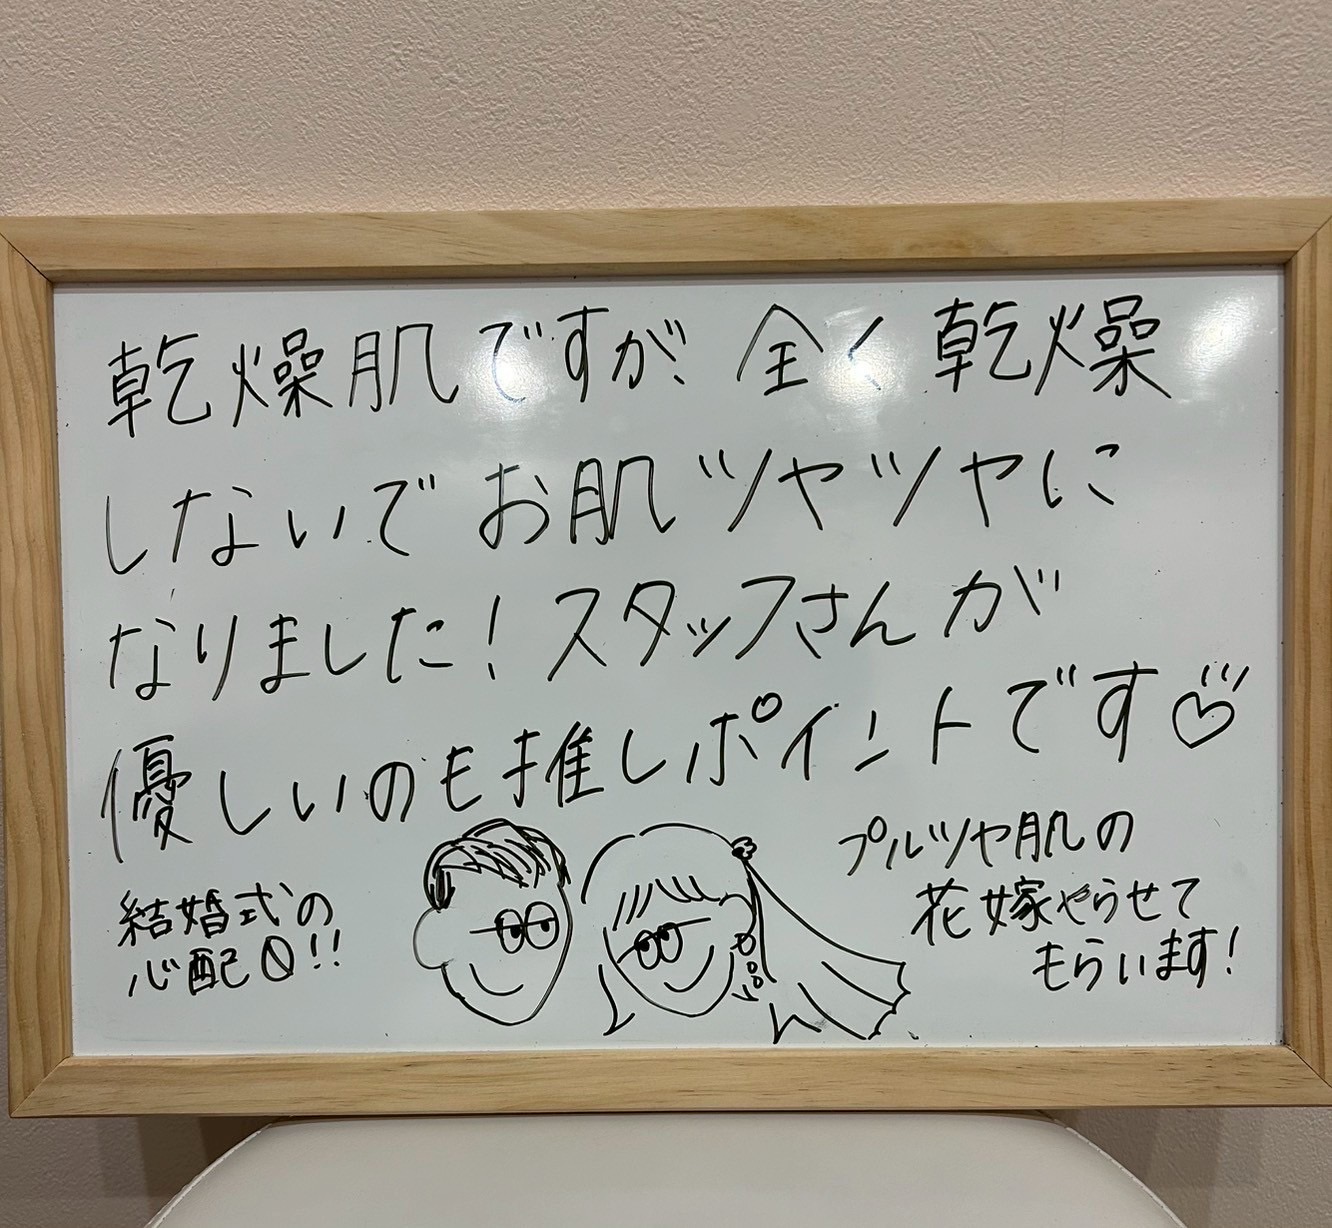 乾燥肌ですが、全く乾燥
しないでお肌ツヤツヤに
なりました！スタッフさんが
優しいのも推しポイントです♡
プルツヤ肌の
花嫁やらせて
もらいます！
結婚式の
心配0!!